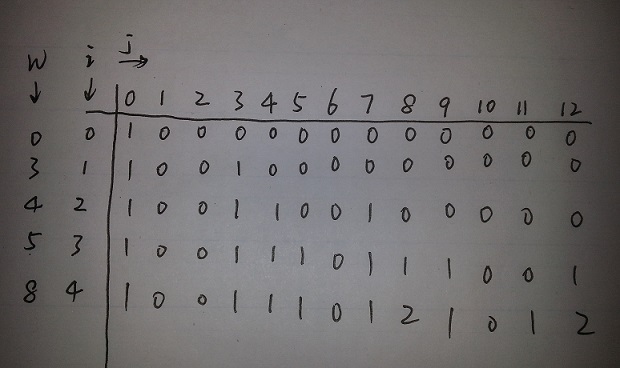 w i j →
↓ ↓ 0 1 2 3 4 5 6 7 8 9 10 11 12
0 0 1 0 0 0 0 0 0 0 0 0 0 0 0
3 1 1 0 0 1 0 0 0 0 0 0 0 0 0
4 2 1 0 0 1 1 0 0 1 0 0 0 0 0
5 3 1 0 0 1 1 1 0 1 1 1 0 0 1
8 4 1 0 0 1 1 1 0 1 2 1 0 1 2